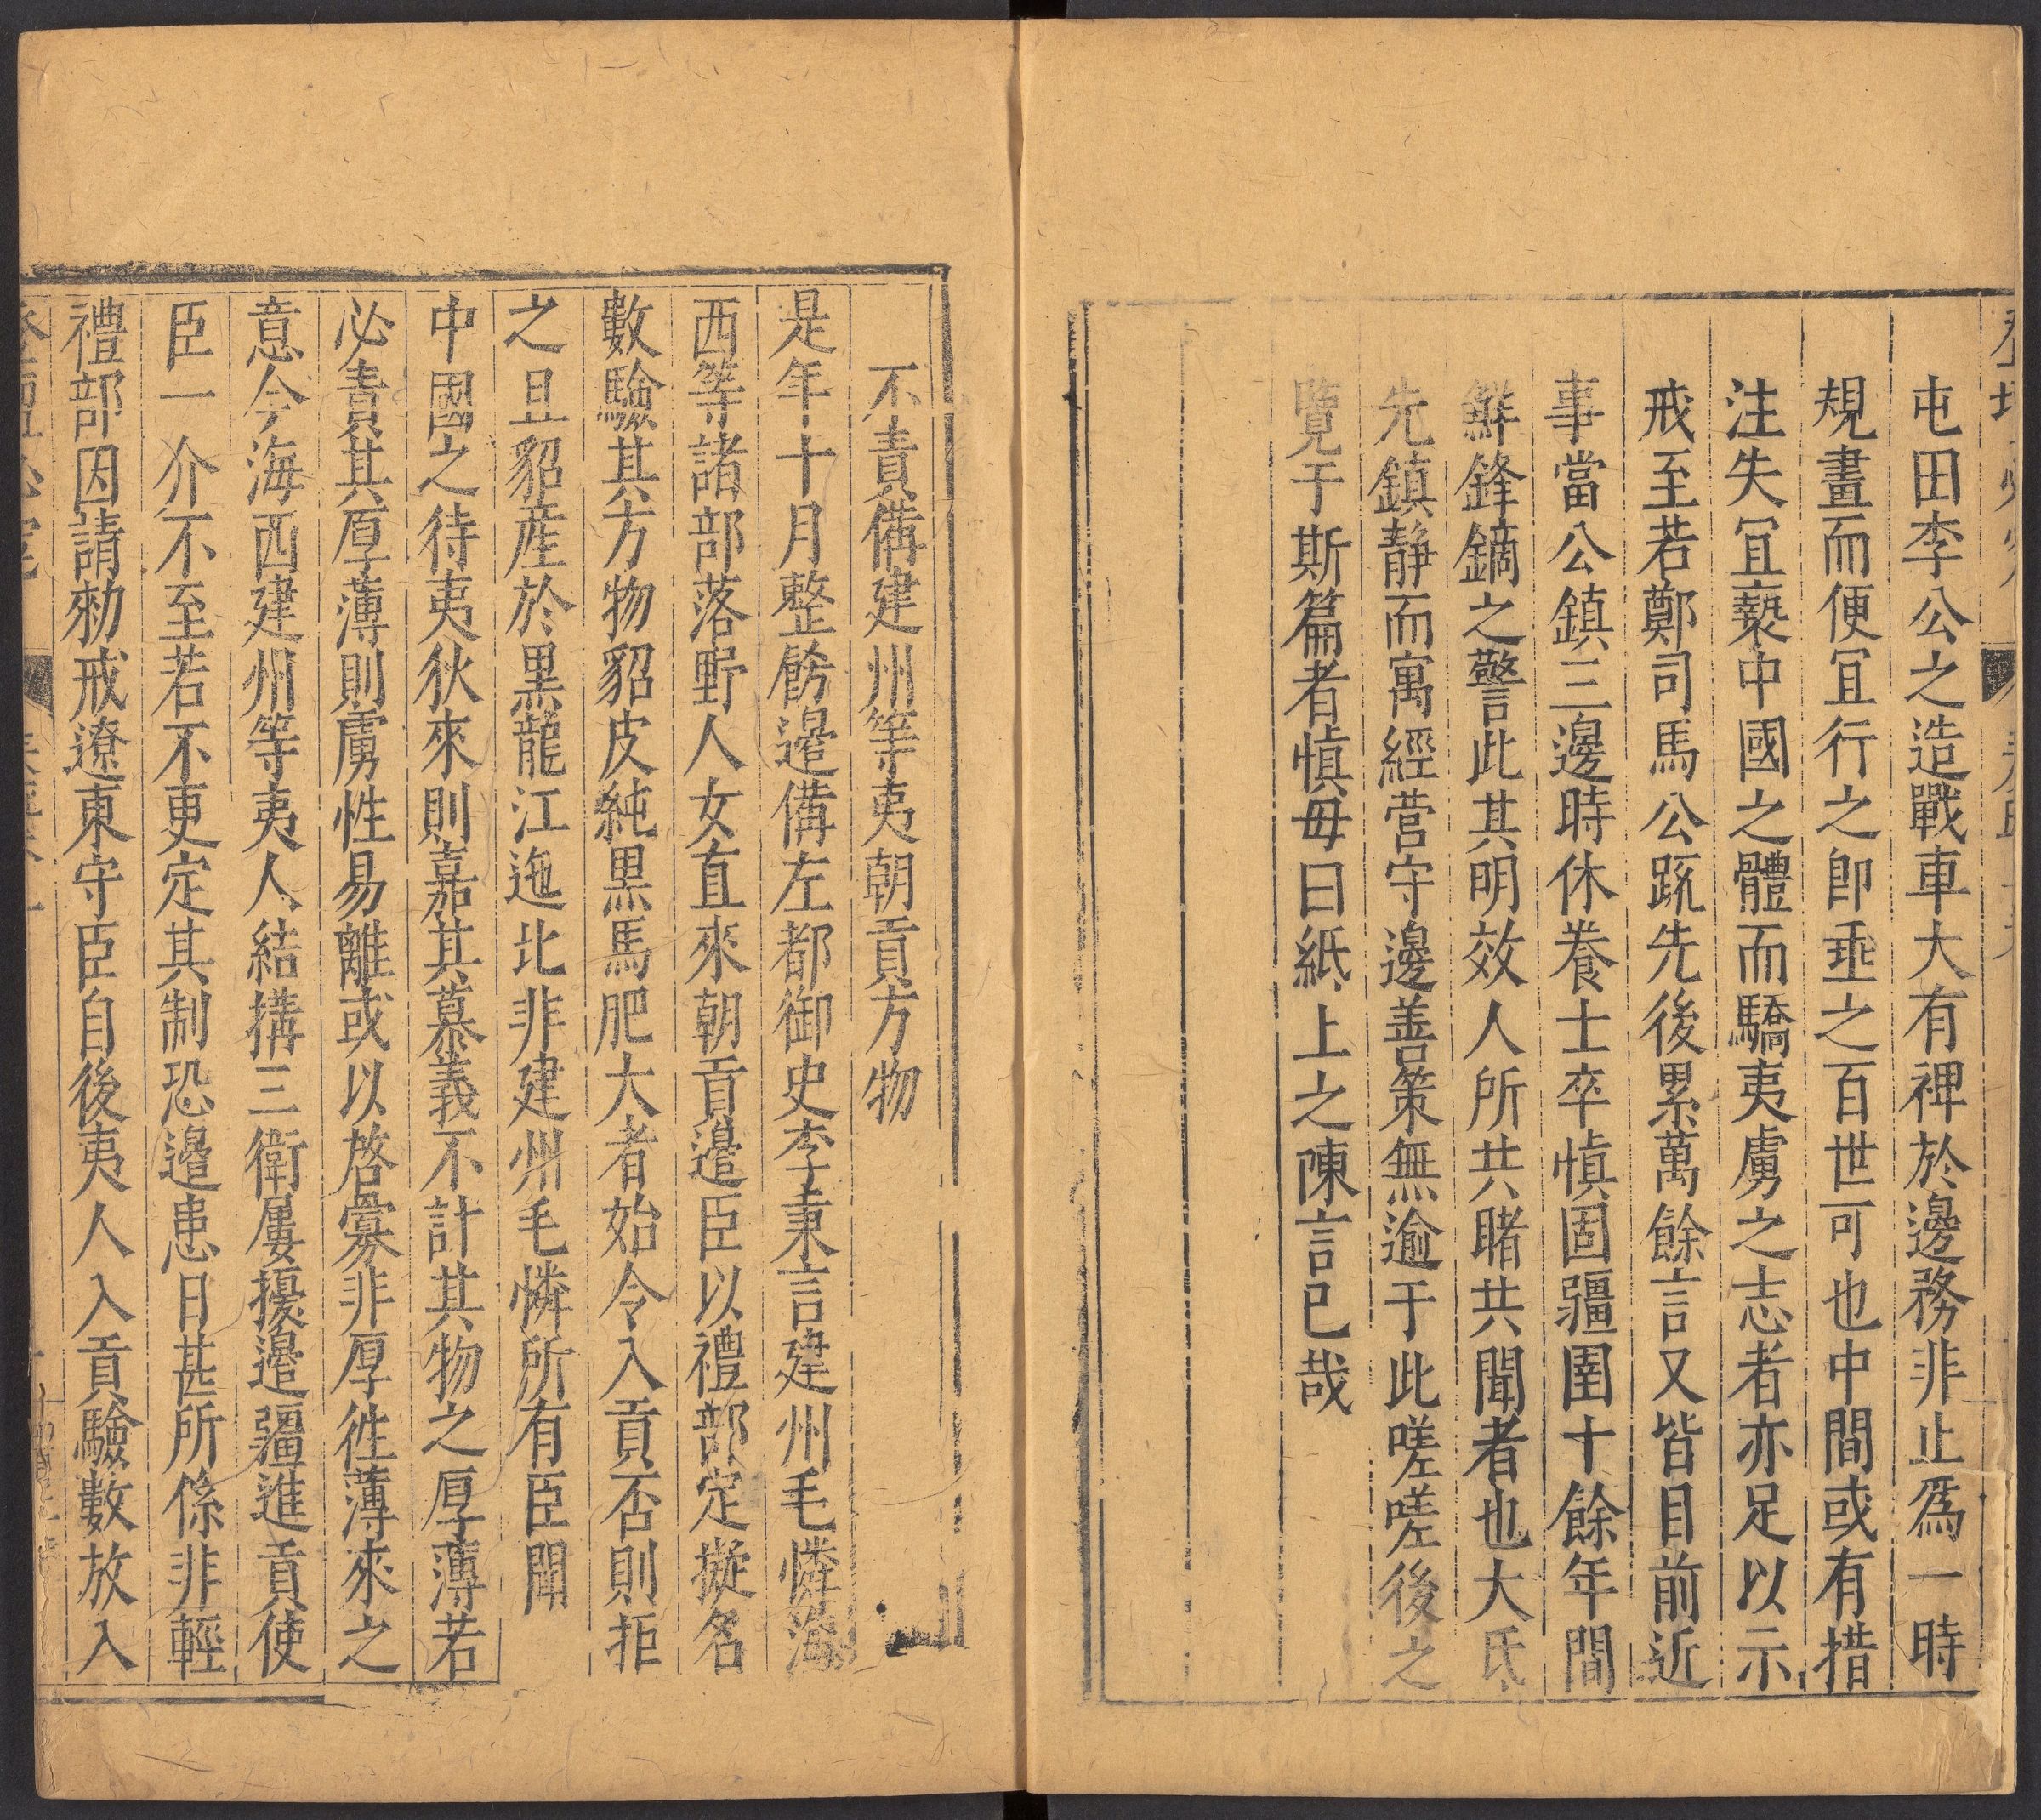 屯田李公之造戰車大有裨於邊務非止爲一時
規畫而便冝行之卽埀之百世可也中間或有措
注失冝褻中國之體而驕夷虜之志者亦足以示
戒至若鄭司馬公䟽先後累萬餘言又皆目前近
事當公鎮三邊時休養士卒愼固疆圉十餘年間
鮮鋒鏑之警此其明效人所共睹共聞者也大氐
先鎮靜而寓經營守邊善策無逾于此嗟嗟後之
覽于斯篇者愼毋曰紙上之陳言已哉
不責備建州等夷朝貢方物
是年十月整飭邊備左都御史李秉言建州毛憐海
西等諸部落野人女直來朝貢邊臣以禮部定擬名
數驗其方物貂皮純黒馬肥大者始令入貢否則拒
之且貂産於黒龍江迤北非建州毛憐所有臣聞
中國之待夷狄來則嘉其慕義不計其物之厚薄若
必責其厚薄則虜性易離或以啓釁非厚徃薄來之
意今海西建州等夷人結搆三衛屢擾邊疆進貢使
臣一介不至若不更定其制恐邊患日甚所係非輕
禮部因請勑戒遼東守臣自後夷人入貢驗數放入